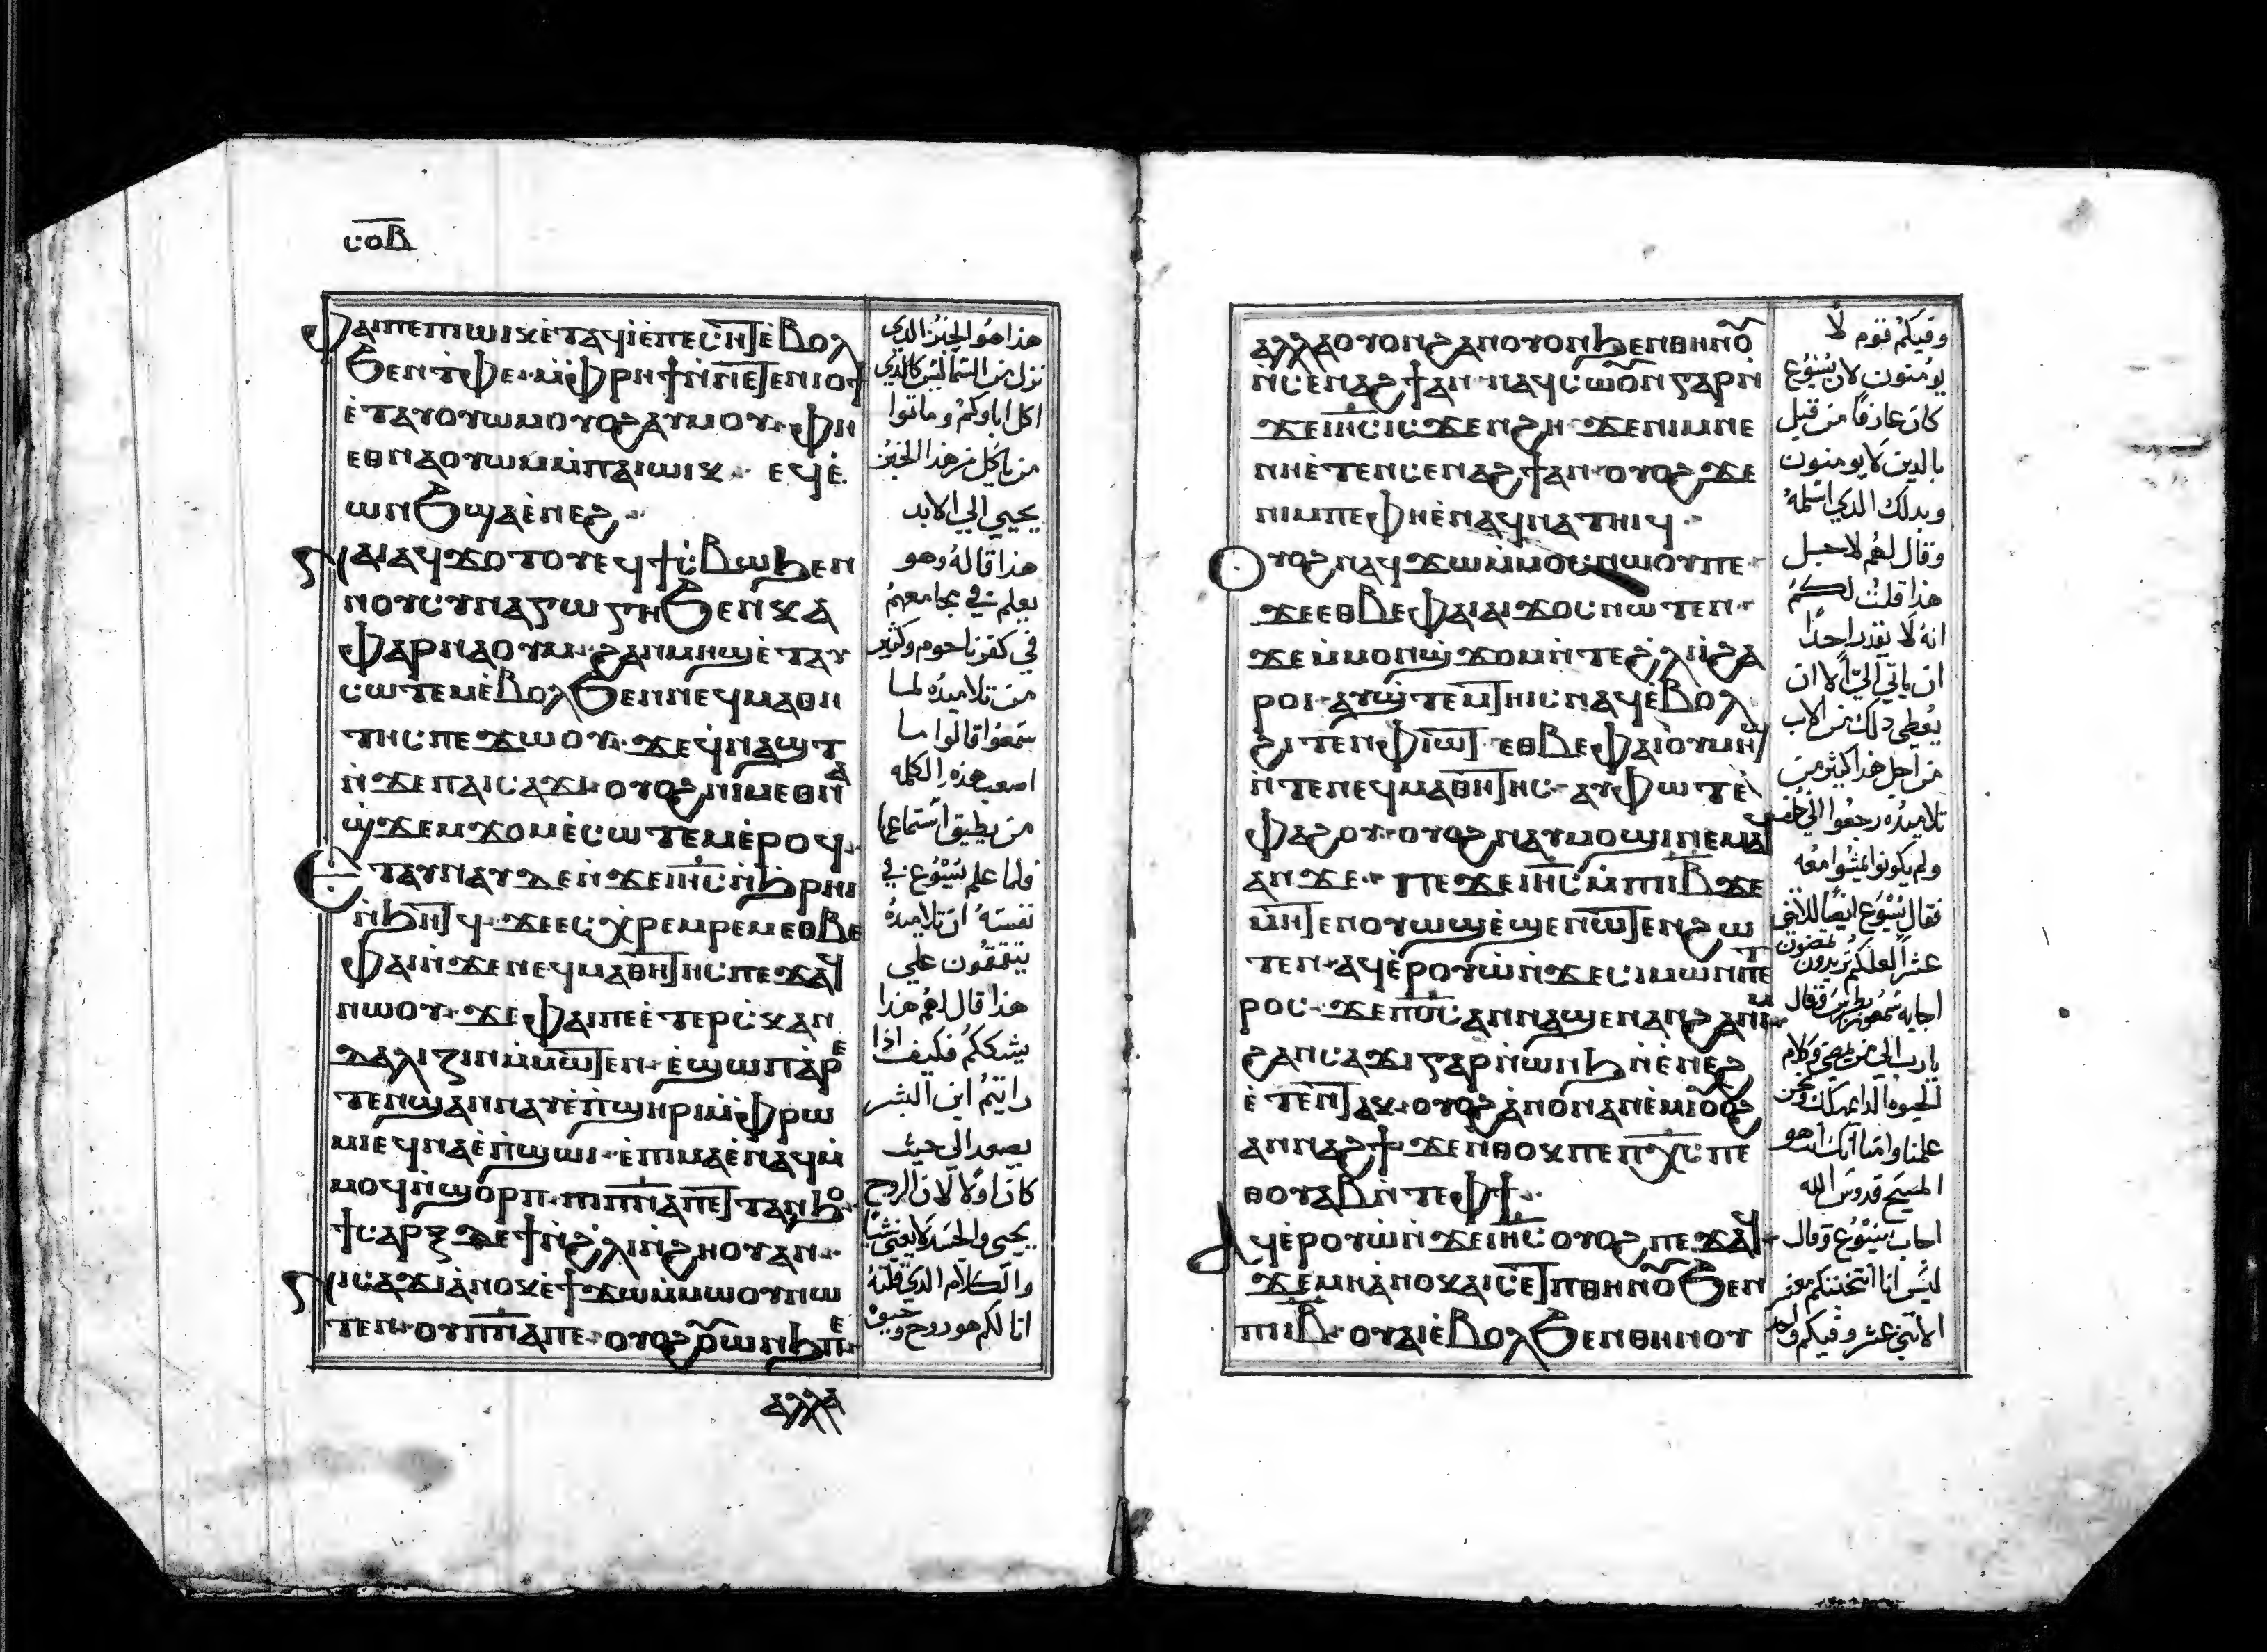 ⲥⲟⲃ
ⲫⲁⲓⲡⲉⲡⲓⲱⲓⲕⲉ̀ⲧⲁϥⲓⲉ̀ⲡⲉⲥⲏⲧⲉ̀ⲃⲟⲗ
ϧⲉⲛⲧ̀ⲫⲉ· ⲙ̀ⲫⲣⲏϯⲛ̀ⲛⲉⲧⲉⲛⲓⲟϯ
ⲉ̀ⲧⲁⲩⲟⲩⲱⲙⲟⲩⲟϩⲁⲩⲙⲟⲩ· ⲫⲏ
ⲉⲑⲛⲁⲟⲩⲱⲙⲙ̀ⲡⲁⲓⲱⲓⲕ· ⲉϥⲉ̀
ⲱⲛϧϣⲁⲉ̀ⲛⲉϩ·
ⲛⲁⲓⲁϥϫⲟⲧⲟⲩⲉϥϯⲥ̀ⲃⲱϧⲉⲛ
ⲛⲟⲩⲥⲩⲛⲁⲅⲱⲅⲏϧⲉⲛⲕⲁ
ⲫⲁⲣⲛⲁⲟⲩⲙ· ϩⲁⲛⲙⲏϣⲉ̀ⲧⲁⲩ
ⲥⲱⲧⲉⲙⲉ̀ⲃⲟⲗϧⲉⲛⲛⲉϥⲙⲁⲑⲏ
ⲧⲏⲥⲡⲉϫⲱⲟⲩ· ϫⲉϥ̀ⲛⲁϣⲧ
ⲛ̀ϫⲉⲡⲁⲓⲥⲁϫⲓ· ⲟⲩⲟϩⲛⲓⲙⲉⲑⲛⲁ
ϣ̀ϫⲉⲙϫⲟⲙⲉ̀ⲥⲱⲧⲉⲙⲉ̀ⲣⲟϥ·
ⲉⲧⲁⲩⲛⲁⲩⲇⲉⲛ̀ϫⲉⲓⲏⲥⲛ̀ϧⲣⲏⲓ
ⲛ̀ϧⲏⲧϥ· ϫⲉⲥⲉⲭⲣⲉⲙⲣⲉⲙⲉⲑⲃⲉ
ⲫⲁⲓⲛ̀ϫⲉⲛⲉϥⲙⲁⲑⲏⲧⲏⲥⲡⲉϫⲁϥ
ⲛⲱⲟⲩ· ϫⲉⲫⲁⲓⲡⲉⲉ̀ⲧⲉⲣⲥ̀ⲕⲁⲛ
ⲇⲁⲗⲓⲍⲓⲛⲙ̀ⲙⲱⲧⲉⲛ· ⲉ̀ϣⲱⲡⲁ̀ⲣⲉ
ⲧⲉⲛϣⲁⲛⲛⲁⲩⲉ̀ⲡ̀ϣⲏⲣⲓⲙ̀ⲫⲣⲱ
ⲙⲓⲉϥⲛⲁⲉ̀ⲡ̀ϣⲱⲓ· ⲉ̀ⲡⲓⲙⲁⲉ̀ⲛⲁϥⲙ̀
ⲙⲟϥⲛ̀ϣⲟⲣⲡ· ⲡⲓⲡⲛⲁⲡⲉⲧⲧⲁⲛϧⲟ
ϯⲥⲁⲣⲝⲇⲉϯⲛ̀ϩⲗⲓⲛ̀ϩⲏⲟⲩⲁⲛ·
ⲛⲓⲥⲁϫⲓⲁ̀ⲛⲟⲕⲉ̀ϯϫⲱⲙ̀ⲙⲱⲟⲩⲛⲱ
ⲧⲉⲛ· ⲟⲩⲡⲛⲁⲡⲉ· ⲟⲩⲟϩⲟⲩⲱⲛϧⲡⲉ·
ⲁⲗⲗⲁ
هذا هو الخبز الذي
نزل من السما ليس كالذي
اكل اباوكم وماتوا
من ياكل من هذا الخبز
يحيي الي الابد
هذا قاله وهو
يعلم في مجامعهم
في كفرناحوم وكثير
من تلاميذه لما
سمعوا قالوا ما
اصعب هذه الكلمه
من يطيق استماعها
فلما علم يسوع في
نفسه ان تلاميذه
يتقمقون علي
هذا قال لهم هذا
يشككم فكيف اذا
رايتم ابن البشر
يصعد الي حيث
كان اولا لان الروح
يحيي والجسد لا يغني شيا
والكلام الذي قلته
انا لكم هو روح وحيوه
ⲁⲗⲗⲁⲟⲩⲟⲛϩⲁⲛⲟⲩⲟⲛϧⲉⲛⲑⲏⲛⲟⲩ
ⲛ̀ⲥⲉⲛⲁϩϯⲁⲛ· ⲛⲁϥⲥⲱⲟⲩⲛⲅⲁⲣⲛ̀
ϫⲉⲓⲏⲥⲓⲥϫⲉⲛϩⲏ· ϫⲉⲛⲓⲙⲛⲉ
ⲛⲏⲉ̀ⲧⲉⲛⲥⲉⲛⲁϩϯⲁⲛ· ⲟⲩⲟϩϫⲉ
ⲛⲓⲙⲡⲉⲫⲏⲉ̀ⲛⲁϥⲛⲁⲧⲏⲓϥ·
ⲟⲩⲟϩⲛⲁϥϫⲱⲙ̀ⲙⲟⲥⲛⲱⲟⲩⲡⲉ·
ϫⲉⲉⲑⲃⲉⲫⲁⲓⲁⲓϫⲟⲥⲛⲱⲧⲉⲛ·
ϫⲉⲙ̀ⲙⲟⲛϣ̀ϫⲟⲙⲛ̀ⲧⲉϩ̀ⲗⲓⲓ̀ϩⲁ
ⲣⲟⲓ· ⲁⲩϣ̀ⲧⲉⲙⲧⲏⲓⲥⲛⲁϥⲉ̀ⲃⲟⲗ
ϩⲓⲧⲉⲛⲫⲓⲱⲧ· ⲉⲑⲃⲉⲫⲁⲓⲟⲩⲙⲏϣ
ⲛ̀ⲧⲉⲛⲉϥⲙⲁⲑⲏⲧⲏⲥ· ⲁⲩⲫⲱⲧⲉ̀
ⲫⲁϩⲟⲩ· ⲟⲩⲟϩⲛⲁⲩⲙⲟϣⲓⲛⲉⲙⲁϥ
ⲁⲛϫⲉ· ⲡⲉϫⲉⲓⲏⲥⲙ̀ⲡⲓⲓⲃϫⲉ
ⲙⲏⲧⲉⲛⲟⲩⲱϣⲉ̀ϣⲉⲛⲱⲧⲉⲛϩⲱ
ⲧⲉⲛ· ⲁϥⲉ̀ⲣⲟⲩⲱⲛ̀ϫⲉⲥⲓⲙⲱⲛⲡⲉⲧ
ⲣⲟⲥ· ϫⲉⲡⲟⲥⲁⲛⲛⲁϣⲉⲛⲁⲛϩⲁⲛⲓⲙ
ϩⲁⲛⲥⲁϫⲓⲅⲁⲣⲛ̀ⲱⲛϧⲛ̀ⲉ̀ⲛⲉϩ
ⲉ̀ⲧⲉⲛⲧⲁⲕ· ⲟⲩⲟϩⲁ̀ⲛⲟⲛⲁⲛⲉ̀ⲙⲓⲟⲩⲟϩ
ⲁⲛⲛⲁϩϯ· ϫⲉⲛ̀ⲑⲟⲕⲡⲉⲡⲭⲥⲡⲉ
ⲑⲟⲩⲁⲃⲛ̀ⲧⲉⲫϯ·
ⲁϥⲉ̀ⲣⲟⲩⲱⲛ̀ϫⲉⲓⲏⲥⲟⲩⲟϩⲡⲉϫⲁϥ·
ϫⲉⲙⲏⲁ̀ⲛⲟⲕⲁⲓⲥⲉⲧⲡⲑⲏⲛⲟⲩϧⲉⲛ
ⲡⲓⲓⲃ· ⲟⲩⲁⲓⲉ̀ⲃⲟⲗϧⲉⲛⲑⲏⲛⲟⲩ
وفيكم قوم لا
يومنون لان يسوع
كان عارفا من قبل
بالذين لا يومنون
وبذلك الذي اسلمه
وقال لهم لاجل
هذا قلت لكم
انه لا يقدر احدا
ان ياتي الي الا ان
يعطي ذلك من الاب
من اجل هذا كثير من
تلاميذه رجعوا الي خلف
ولم يكونوا يمشوا معه
فقال يسوع ايضا للاثني
عشر العلكم تريدون تمضون
اجابه سمعون بطرس وقال
يارب الي من نمضي وكلام
الحيوه الدايمه لك ونحن
علمنا وامنا انك انت هو
المسيح قدوس الله
اجاب يسوع وقال
ليس انا انتخبتكم معشر
الاثني عشر وفيكم واحد